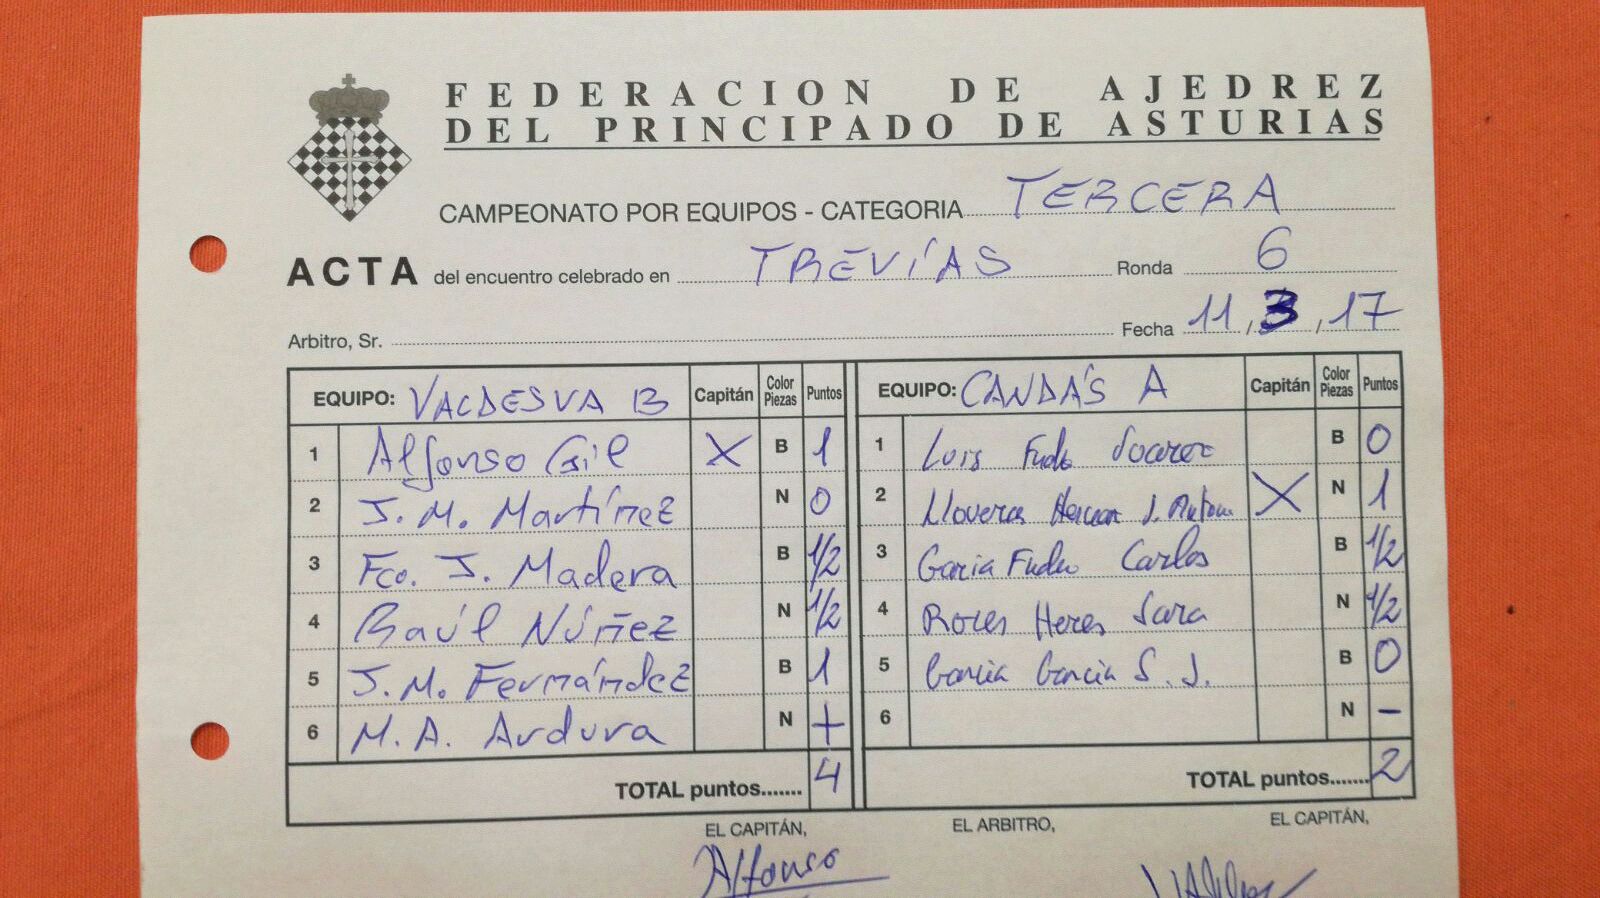 FEDERACION DE AJEDREZ
DEL PRINCIPADO DE ASTURIAS
CAMPEONATO POR EQUIPOS - CATEGORIA TERCERA
ACTA del encuentro celebrado en TREVÍAS Ronda 6
Arbitro, Sr. Fecha 11/3/17
EQUIPO: VALDESVA B Capitán Color Piezas Puntos EQUIPO: CANDÁS A Capitán Color Piezas Puntos
1 Alfonso Gil X B 1 1 Luis Fndo B 0
2 J. M. Martínez N 0 2 Lloveras J. Antonio X N 1
3 Fco. J. Madera B 1/2 3 Garcia Carlos B 1/2
4 Raúl Núñez N 1/2 4 Roces Heres Sara N 1/2
5 J. M. Fernández B 1 5 Garcia Garcia S. J. B 0
6 M. A. Ardura N + 6 N -
TOTAL puntos....... 4 TOTAL puntos....... 2
EL CAPITÁN, EL ARBITRO, EL CAPITÁN,
Alfonso